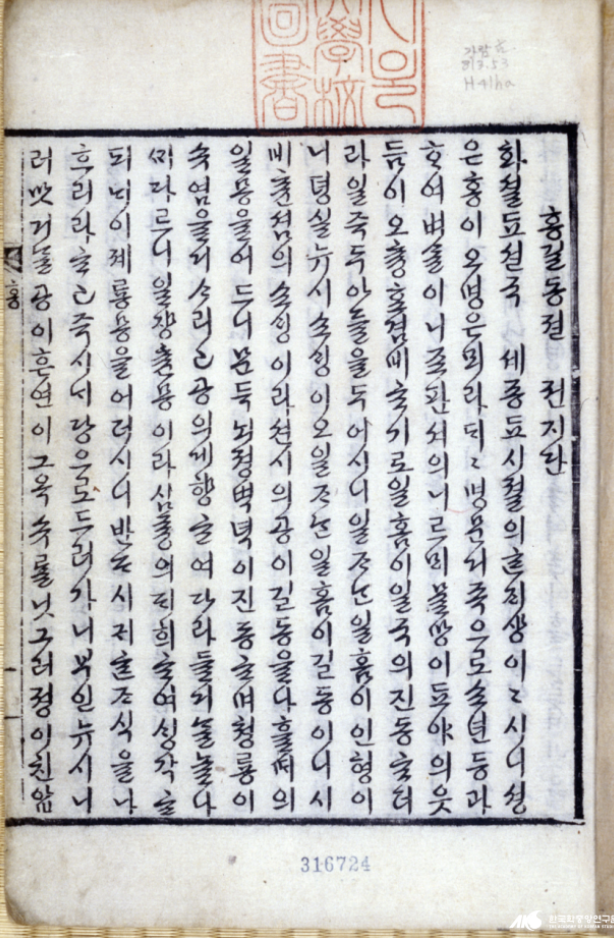 홍길동젼 권지단
화셜 됴션국 셰종됴 시졀의 ᄒᆞᆫ ᄌᆡ샹이〻시니 셩
은 홍이오 명은 뫼라 ᄃᆡ〻 명문거족으로 쇼년등과
ᄒᆞ여 벼ᄉᆞᆯ이 니조판셔의 니르ᄆᆡ 물망이 됴야의 읏
듬이오 츙효겸비ᄒᆞ기로 일홈이 일국의 진동ᄒᆞ더
라 일즉 두 아들을 두어시니 일ᄌᆞᄂᆞᆫ 일홈이 인형이
니 뎡실 뉴시 쇼ᄉᆡᆼ이오 일ᄌᆞᄂᆞᆫ 일홈이 길동이니 시
비 츈셤의 쇼ᄉᆡᆼ이라 션시의 공이 길동을 나흘 ᄯᆡ의
일몽을 어드니 문득 뇌졍벽녁이 진동ᄒᆞ며 쳥룡이
슈염을 거ᄉᆞ리고 공의게 향ᄒᆞ여 다라들거ᄂᆞᆯ 놀나
ᄭᆡ다르니 일쟝츈몽이라 심즁의 ᄃᆡ희ᄒᆞ여 ᄉᆡᆼ각ᄒᆞ
되 ᄂᆡ 이졔 룡몽을 어더시니 반ᄃᆞ시 귀ᄒᆞᆫ ᄌᆞ식을 나
흐리라 ᄒᆞ고 즉시 ᄂᆡ당으로 드러가니 부인 뉴시 니
러 맛거ᄂᆞᆯ 공이 흔연이 그 옥슈를 닛그러 졍이 친압
홍
316724